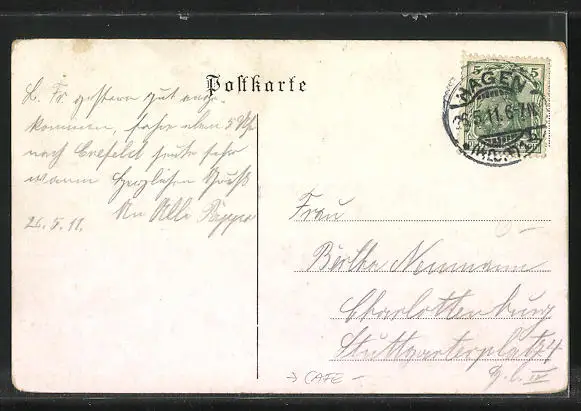 Postkarte
L. Fr. gestern gut ange-
kommen, fahre eben 5 Uhr
nach Crefeld heute sehr
warm Herzlichen Gruß
An Alle Pappa
26.5.11.
HAGEN
26.5.11.6-7N
5 5
Frau
Bertha Neumann
Charlottenburg
Stuttgarterplatz 4
→ CAFE –